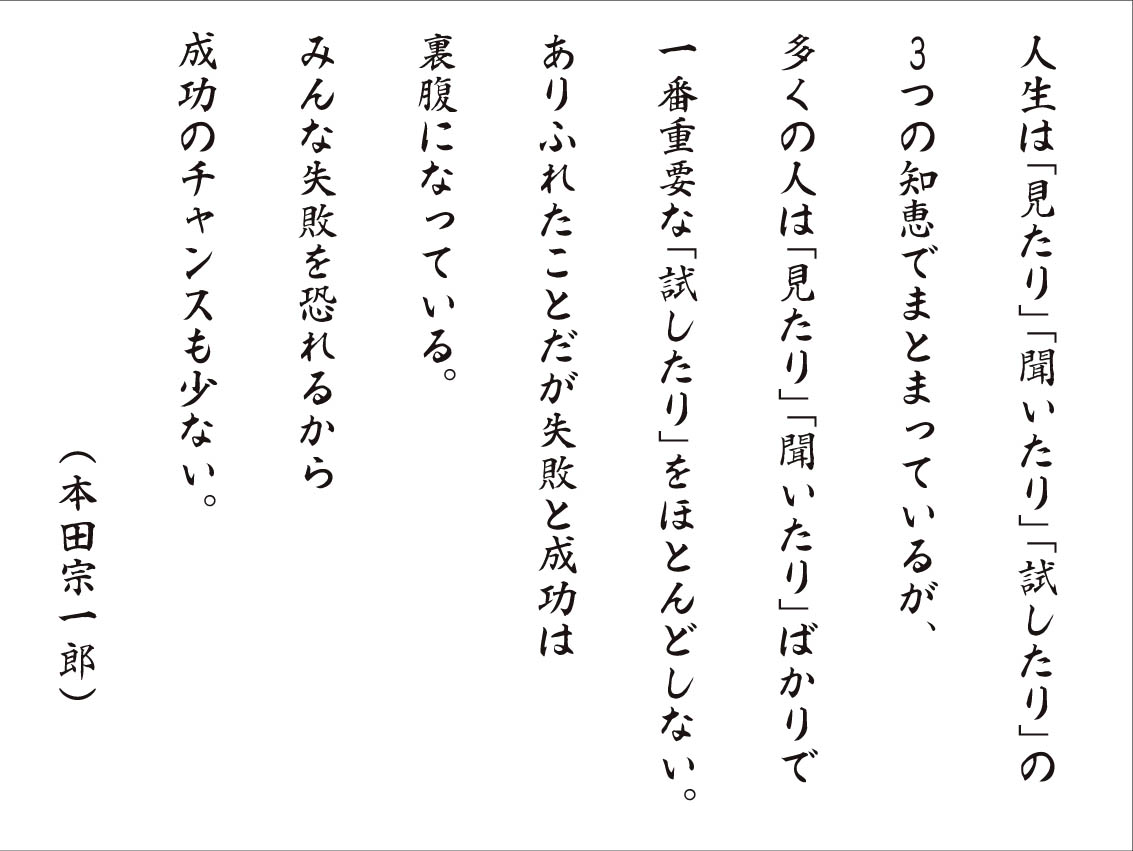 人生は「見たり」「聞いたり」「試したり」の
3つの知恵でまとまっているが、
多くの人は「見たり」「聞いたり」ばかりで
一番重要な「試したり」をほとんどしない。
ありふれたことだが失敗と成功は
裏腹になっている。
みんな失敗を恐れるから
成功のチャンスも少ない。
（本田宗一郎）